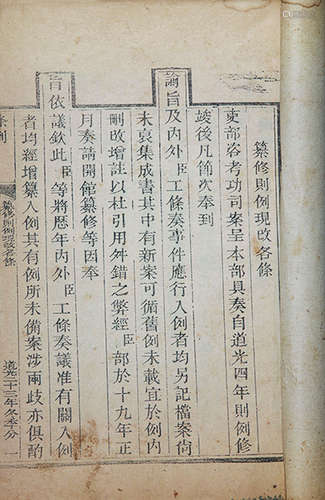 纂修則例現改各條
吏部咨考功司案呈本部具奏自道光四年則例修
竣後凡節次奉到
諭旨及內外臣工條奏事件應行入例者均另記檔案尚
未裒集成書其中有新案可循舊例未載宜於例內
刪改增註以杜引用舛錯之弊經臣部於十九年正
月奏請開館纂修等因奉
旨依議欽此臣等將歷年內外臣工條奏議准有關入例
者均經增纂入例其有例所未備案涉兩歧亦俱酌
條例
纂修則例現改各條
道光二十三年冬季分
一